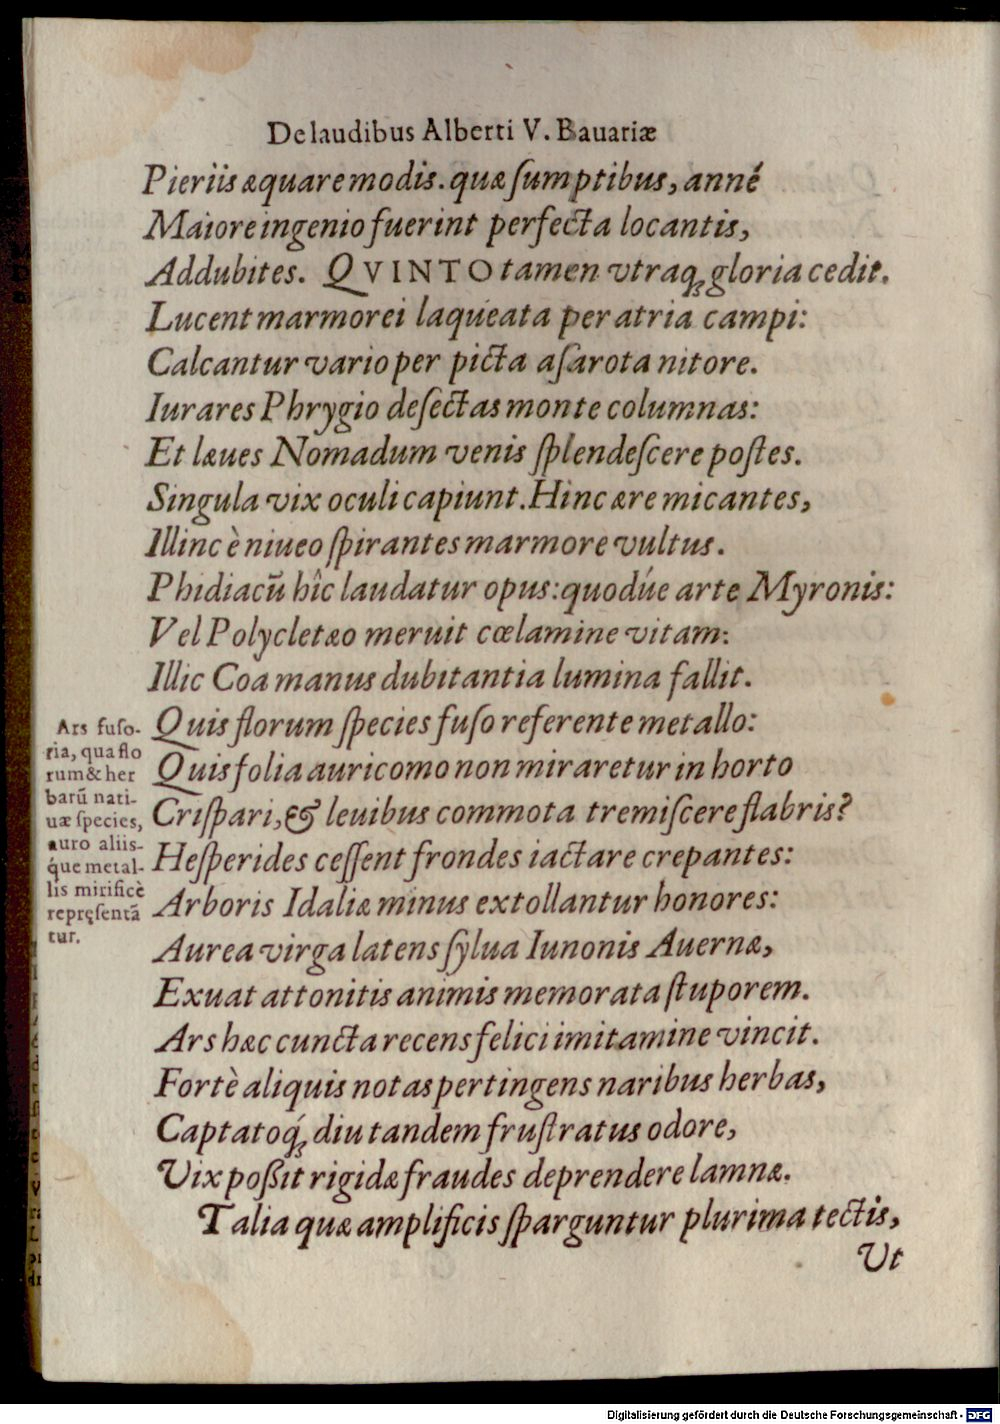 De laudibus Alberti V. Bauariæ
Pieriis æquare modis. quæ ſumptibus, anné
Maiore ingenio fuerint perfecta locantis,
Addubites. QVINTO tamen vtraq; gloria cedit.
Lucent marmorei laqueata per atria campi:
Calcantur vario per picta aſarota nitore.
Iurares Phrygio deſectas monte columnas:
Et læues Nomadum venis ſplendeſcere poſtes.
Singula vix oculi capiunt. Hinc ære micantes,
Illinc è niueo ſpirantes marmore vultus.
Phidiacū hîc laudatur opus: quodúe arte Myronis:
Vel Polycletæo meruit cœlamine vitam:
Illic Coa manus dubitantia lumina fallit.
Quis florum ſpecies fuſo referente metallo:
Quis folia auricomo non miraretur in horto
Criſpari, & leuibus commota tremiſcere flabris?
Heſperides ceſſent frondes iactare crepantes:
Arboris Idaliæ minus extollantur honores:
Aurea virga latens ſylua Iunonis Auernæ,
Exuat attonitis animis memorata ſtuporem.
Ars hæc cuncta recens felici imitamine vincit.
Fortè aliquis notas pertingens naribus herbas,
Captatoq́; diu tandem fruſtratus odore,
Vix poßit rigidæ fraudes deprendere lamnæ.
Talia quæ amplificis ſparguntur plurima tectis,
Ut
Ars fuſo-
ria, qua flo
rum & her
barū nati-
uæ ſpecies,
auro aliis-
q́ue metal-
lis mirificè
repręſentā
tur.
Digitalisierung gefördert durch die Deutsche Forschungsgemeinschaft - DFG